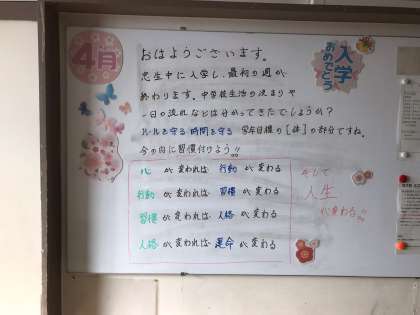 4月
入学
おめでとう
おはようございます。
忠生中に入学し、最初の週が
終わります。中学校生活の決まりや
一日の流れなどは分かってきたでしょうか？
ルールを守る 時間を守る 学年目標の［律］の部分ですね。
今の内に習慣付けよう!!
心 が 変われば 行動 が 変わる
行動 が 変われば 習慣 が 変わる
習慣 が 変われば 人格 が 変わる
人格 が 変われば 運命 が 変わる
そして
人生
が変わる!!